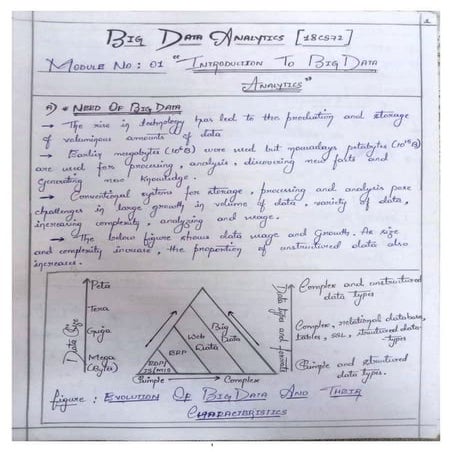 1
BIG DATA ANALYTICS [18CS72]
MODULE NO: 01 "INTRODUCTION TO BIG DATA
ANALYTICS"
A) * NEED OF BIG DATA
→ The rise in technology has led to the production and storage
of voluminous amounts of data
→ Earlier megabytes (10⁶B) were used but nowadays petabytes (10¹⁵B)
are used for processing, analysis, discovering new facts and
generating new knowledge.
→ Conventional systems for storage, processing and analysis pose
challenges in large growth in volume of data, variety of data,
increasing complexity, analyzing and usage.
→ The below figure shows data usage and Growth. As size
and complexity increase, the proportion of unstructured data also
increases.
Data Size
Peta
Tera
Giga
Mega
(Byte)
ERP
Web
Data
Big
Data
Simple → Complex
Data type and formats
Complex and unstructured
data types
Complex, relational database,
tables, structured data
types
Simple and structured
data types.
figure: EVOLUTION OF BIG DATA AND THEIR
CHARACTERISTICS